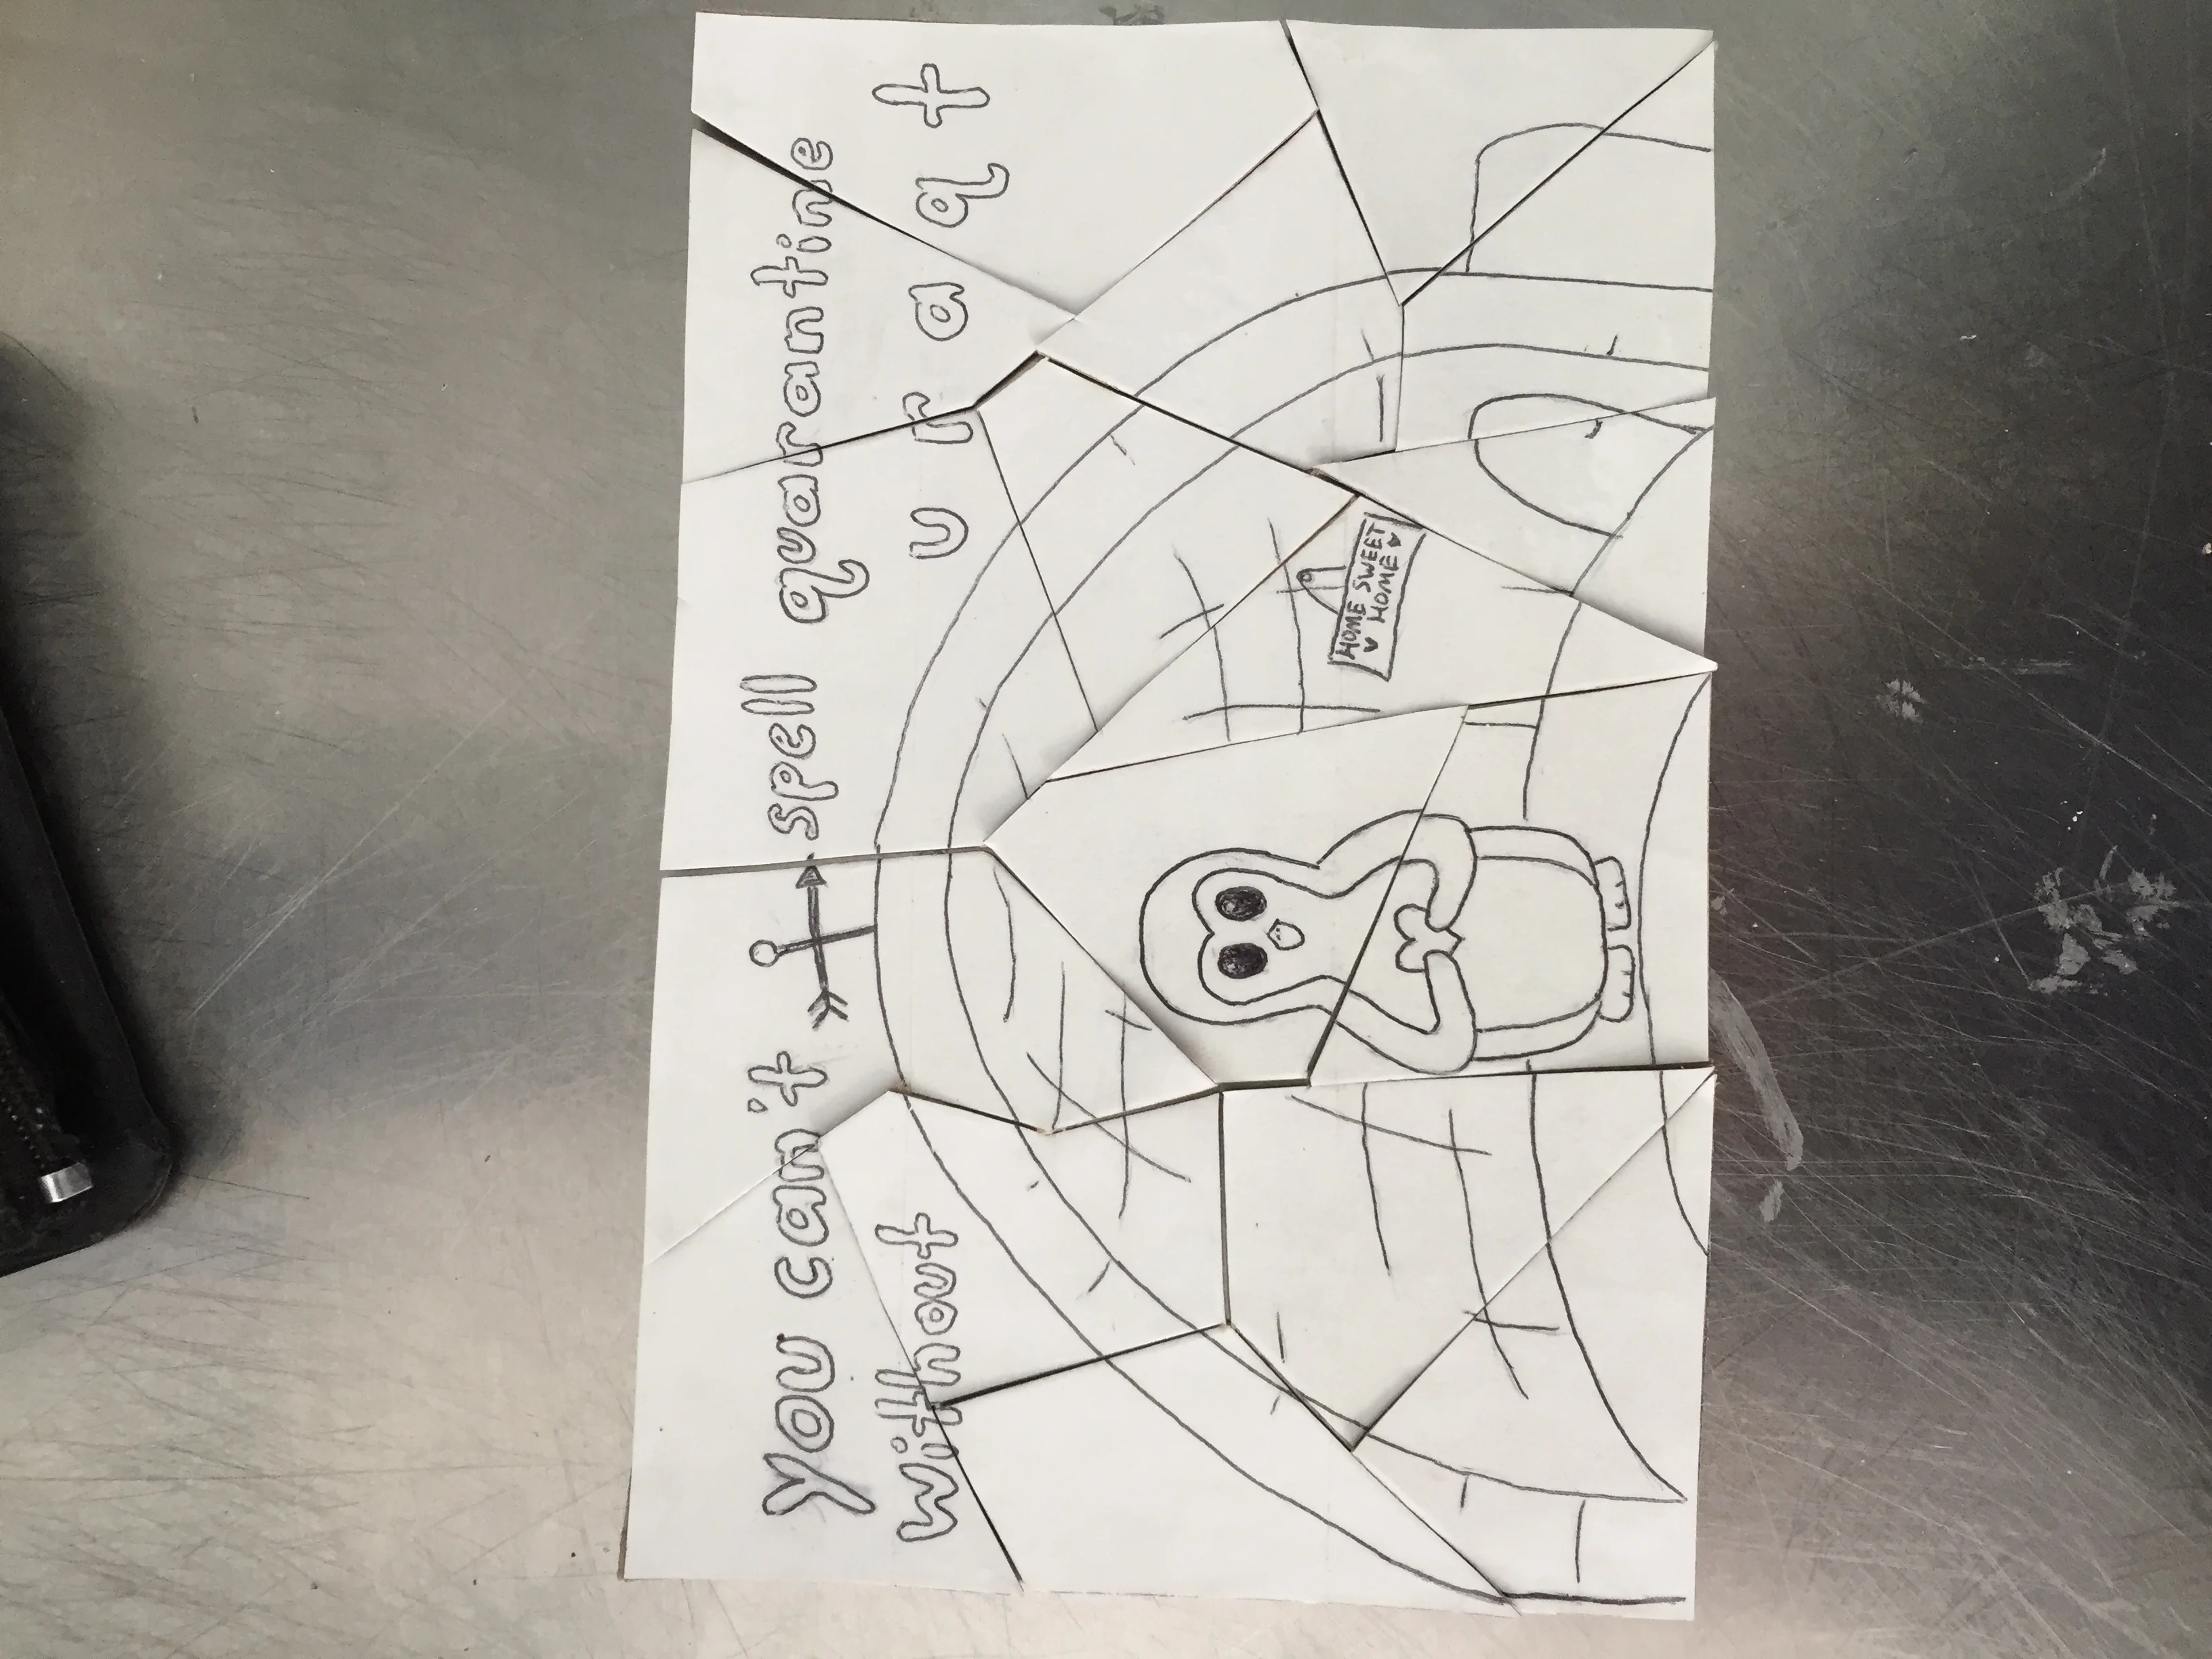 You can't spell quarantine
without u r a q t
HOME SWEET
♥ HOME ♥